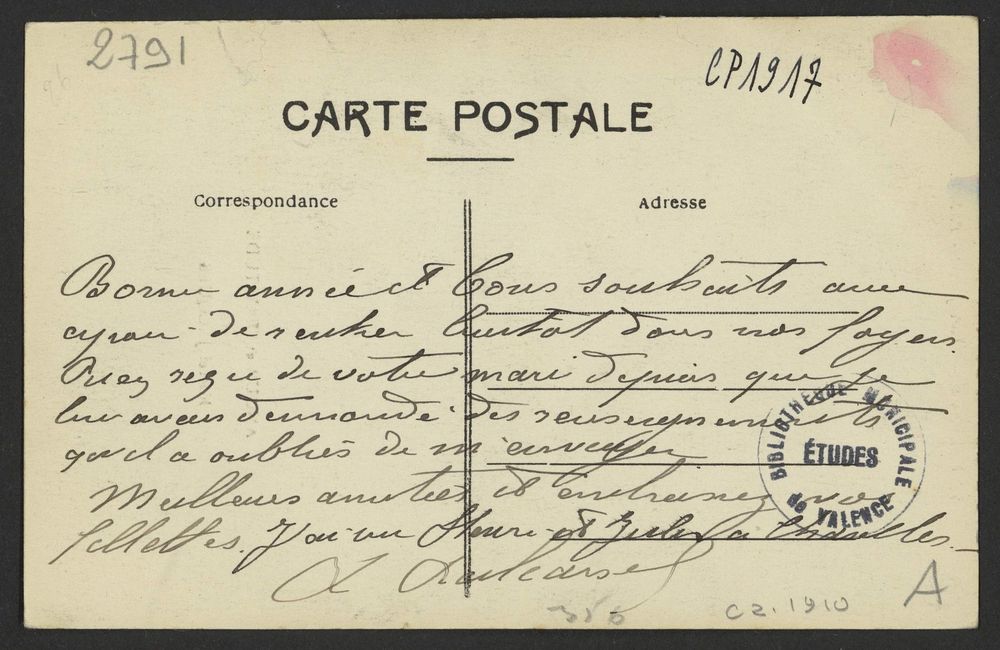 2791
CP1917
CARTE POSTALE
Correspondance
Adresse
Bonne année et bons souhaits avec
espoir de rentrer bientot dans nos foyers.
reçu de votre mari depuis que je
lui avais demandé des renseignements
qu'il a oubliés de m'envoyer
Meilleures amitiés et embrassez vos
fillettes. J'ai vu Henri et Jules a
BIBLIOTHEQUE MUNICIPALE
ÉTUDES
de VALENCE
A
CZ.1910